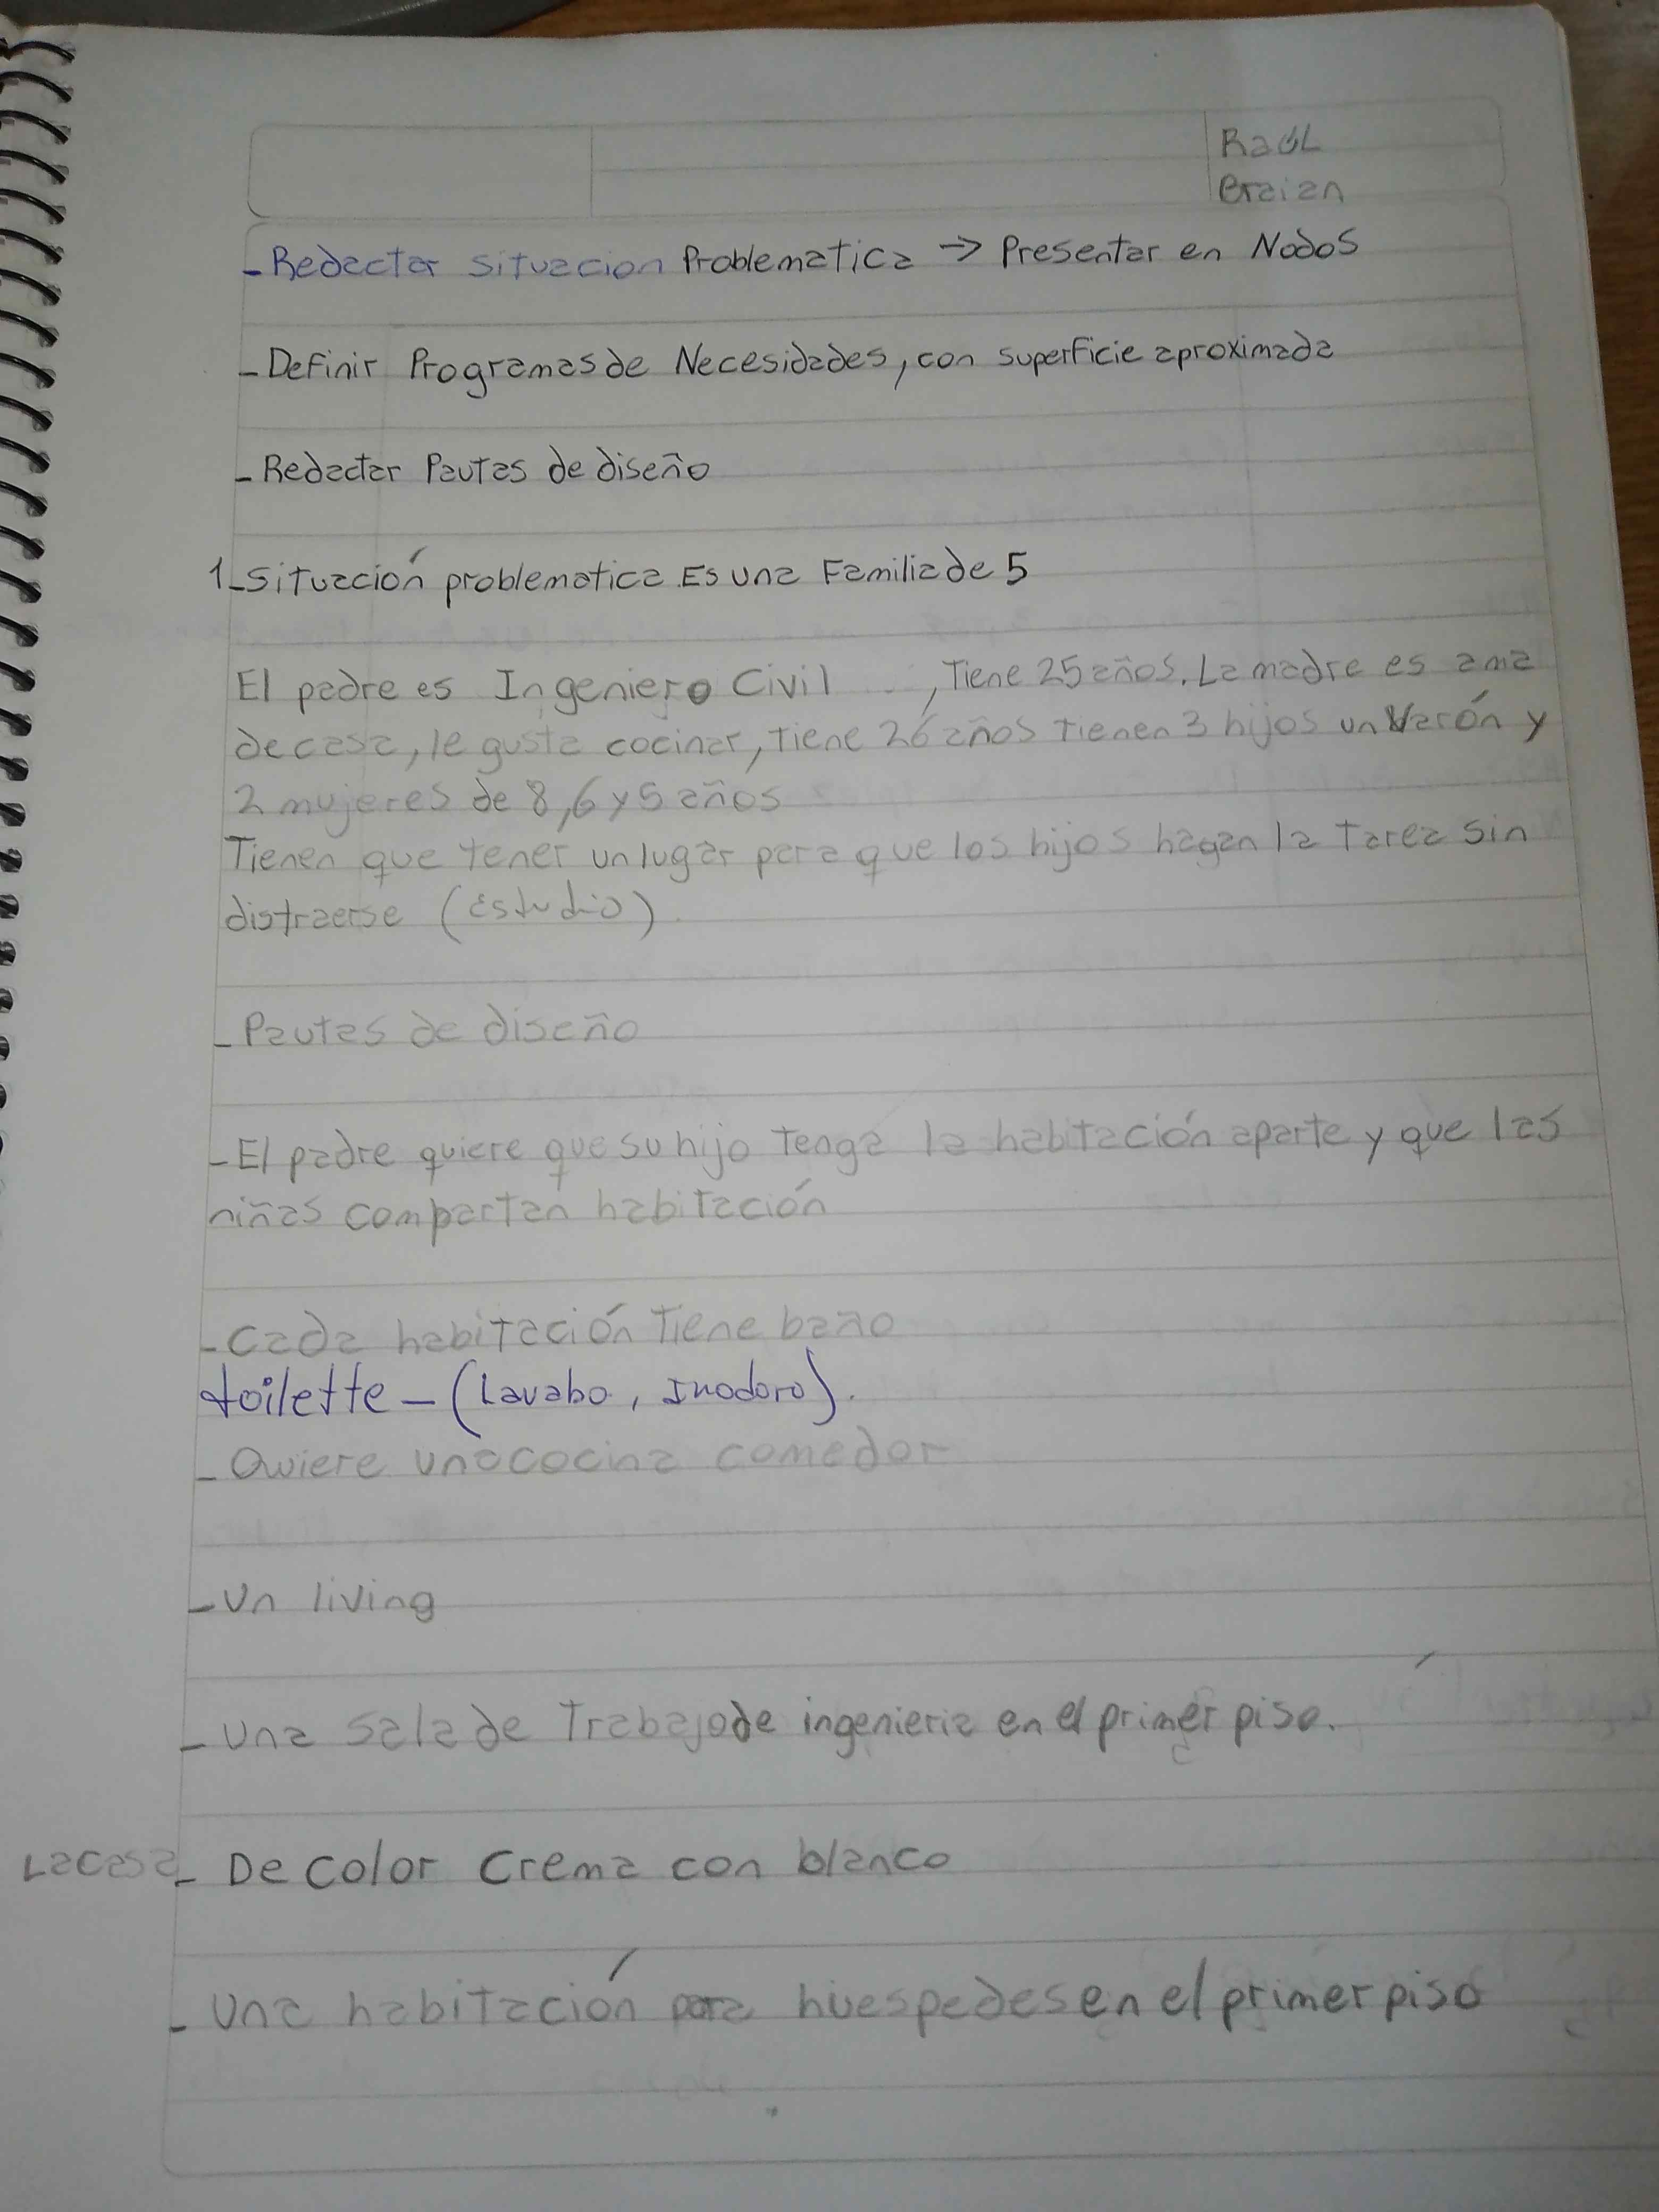 Raúl
Braian
- Redactar situacion Problematica → Presentar en Nodos
- Definir Programas de Necesidades, con superficie aproximada
- Redactar Pautas de diseño
1- Situación problematica Es una Familia de 5
El padre es Ingeniero Civil , Tiene 25 años. La madre es ama
de casa, le gusta cocinar, Tiene 26 años Tienen 3 hijos un Varón y
2 mujeres de 8, 6 y 5 años
Tienen que tener un lugar para que los hijos hagan la Tarea sin
distraerse (Estudio).
- Pautas de diseño
- El padre quiere que su hijo Tenga la habitación aparte y que las
niñas compartan habitación
- Cada habitación Tiene baño
toilette - (Lavabo, Inodoro).
- Quiere una cocina comedor
- Un living
- Una sala de Trabajo de ingenieria en el primer piso.
La casa - De color Crema con blanco
- Una habitación para huespedes en el primer piso